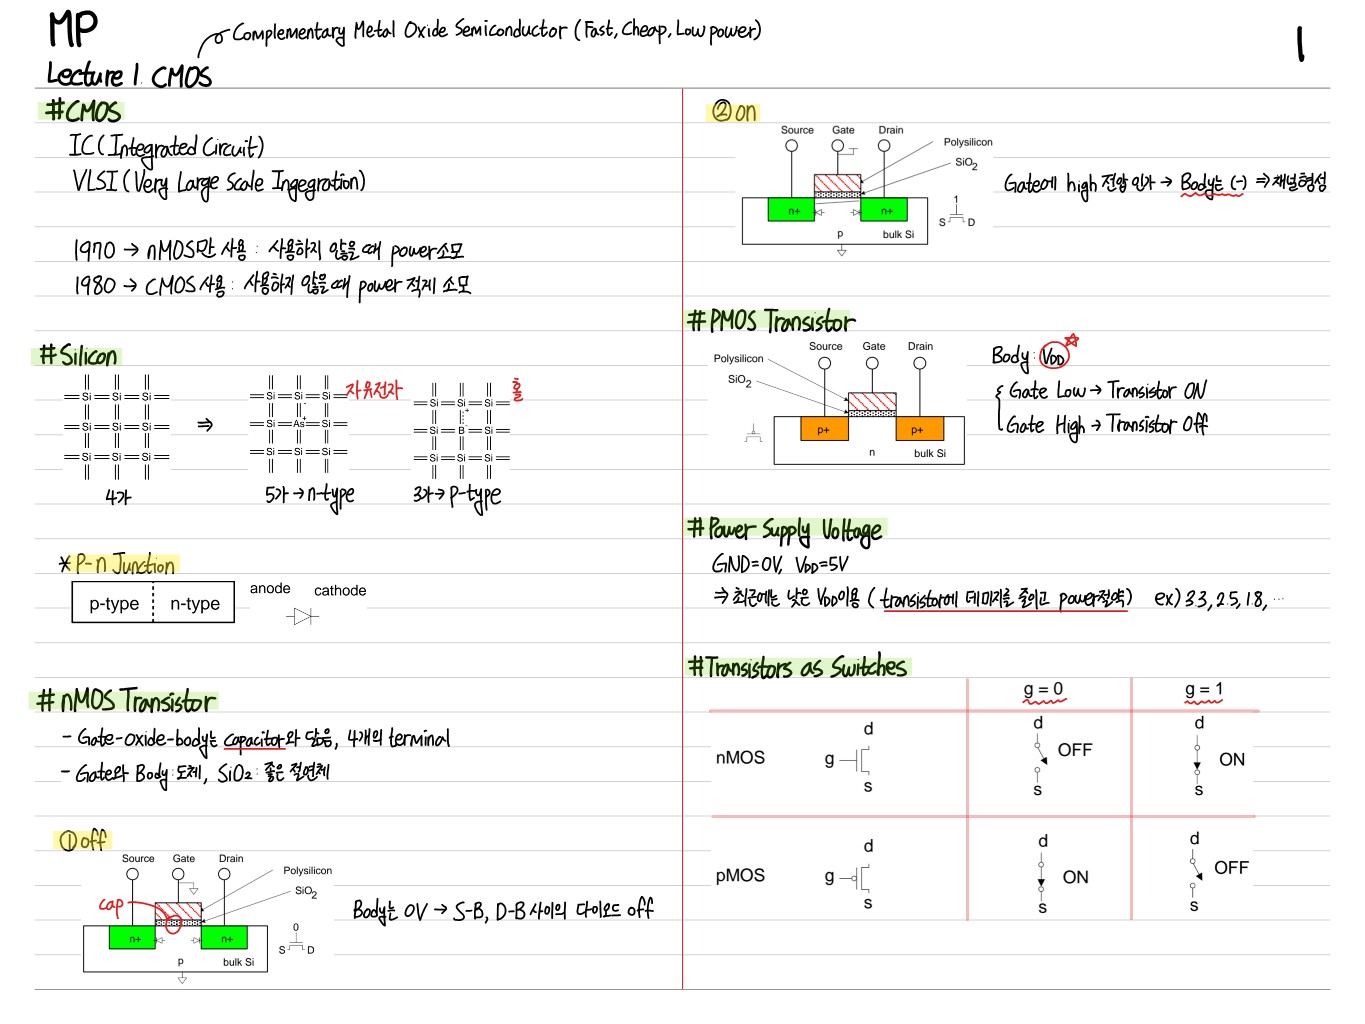 MP
Complementary Metal Oxide Semiconductor (Fast, Cheap, Low power)
1
Lecture 1. CMOS
#CMOS
IC (Integrated Circuit)
VLSI (Very Large Scale Ingegration)
1970 → nMOS만 사용 : 사용하지 않을 때 power 소모
1980 → CMOS 사용 : 사용하지 않을 때 power 적게 소모
#Silicon
Si Si Si
Si Si Si
Si Si Si
4가
⇒
Si Si Si
-
+
Si As Si
Si Si Si
자유전자
5가 → n-type
Si Si Si
+
-
Si B Si
Si Si Si
홀
3가 → p-type
* P-n Junction
p-type n-type
anode cathode
# nMOS Transistor
- Gate-oxide-body는 capacitor와 닮음, 4개의 terminal
- Gate와 Body : 도체, SiO2 : 좋은 절연체
① off
Source Gate Drain
Polysilicon
SiO2
cap
n+ n+
p bulk Si
0
S D
Body는 0V → S-B, D-B 사이의 다이오드 off
② on
Source Gate Drain
Polysilicon
SiO2
n+ n+
p bulk Si
1
S D
Gate에 high 전압 인가 → Body는 (-) ⇒ 채널형성
#PMOS Transistor
Source Gate Drain
Polysilicon
SiO2
p+ p+
n bulk Si
Body : VDD
Gate Low → Transistor ON
Gate High → Transistor Off
#Power Supply Voltage
GND=0V, VDD=5V
⇒ 최근에는 낮은 VDD이용 ( transistor에 데미지를 줄이고 power절약) ex) 3.3, 2.5, 1.8, ...
#Transistors as Switches
g = 0 g = 1
nMOS
d
g
s
d
OFF
s
d
ON
s
pMOS
d
g
s
d
ON
s
d
OFF
s